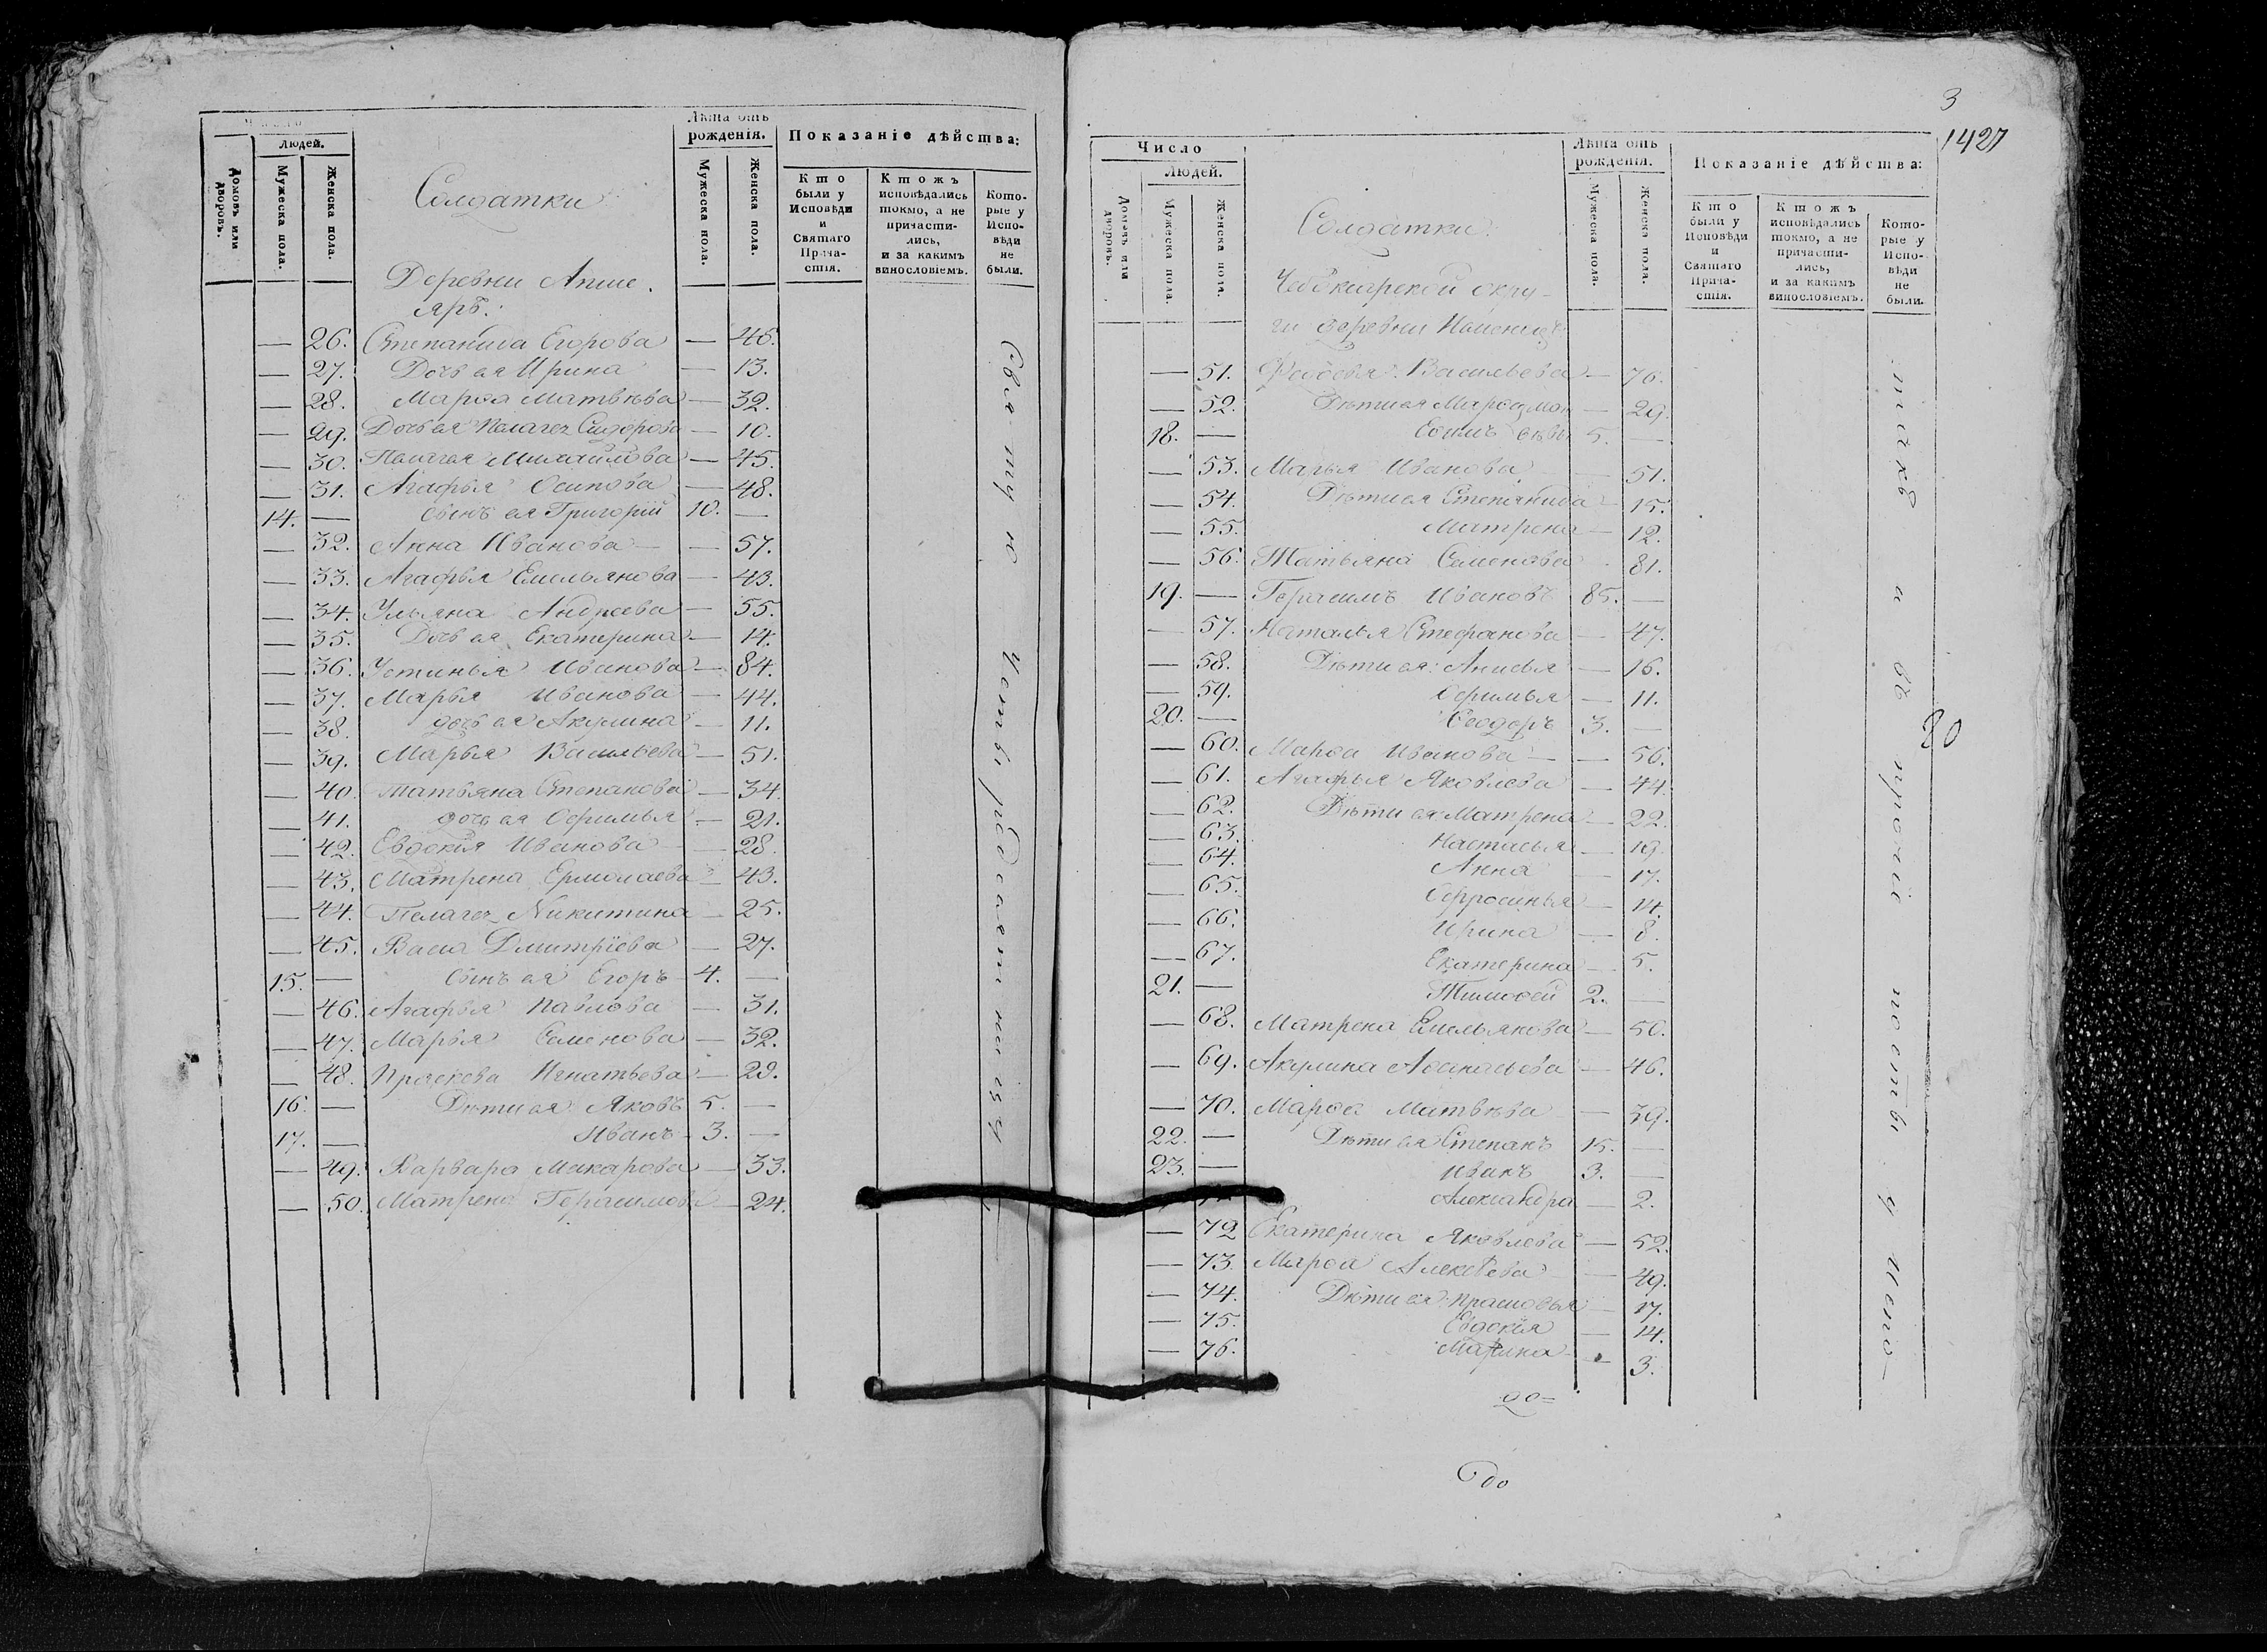 Число
Людей.
Домовъ или дворовъ.
Мужеска пола.
Женска пола.
Солдатки
Лѣта отъ рожденія.
Мужеска пола.
Женска пола.
Показаніе дѣйства:
Кто были у Исповѣди и Святаго Причастія.
Ктожъ исповѣдались токмо, а не причастились, и за какимъ винословіемъ.
Которые у Исповѣди не были.
Деревни Апше.
яръ:
— 26. Степанида Егорова — 46.
— 27. Дочь ея Ирина — 13.
— 28. Марѳа Матвѣева — 32.
— 29. Дочь ея Пелагея Сидорова — 10.
— 30. Пелагея Михайлова — 45.
— 31. Агафья Осипова — 48.
14. — сынъ ея Григорій 10. —
— 32. Анна Иванова — 57.
— 33. Агафья Емельянова — 43.
— 34. Ульяна Андреева — 55.
— 35. Дочь ея Екатерина — 14.
— 36. Устинья Иванова — 84.
— 37. Марья Иванова — 44.
— 38. дочь ея Акулина — 11.
— 39. Марья Васильева — 51.
— 40. Татьяна Степанова — 34.
— 41. дочь ея Офимья — 21.
— 42. Евдокія Иванова — 28.
— 43. Матрена Ермолаева — 43.
— 44. Пелагея Никитина — 25.
— 45. Васса Дмитріева — 27.
15. — сынъ ея Егоръ 4. —
— 46. Агафья Павлова — 31.
— 47. Марья Семенова — 32.
— 48. Праскева Игнатьева — 29.
16. — Дѣти ея Яковъ 5. —
17. — Иванъ 3. —
— 49. Варвара Макарова — 33.
— 50. Матрена Герасимова — 24.
Святую Четыредесятницу
3
1427
Число
Людей.
Домовъ или дворовъ.
Мужеска пола.
Женска пола.
Солдатки:
Лѣта отъ рожденія.
Мужеска пола.
Женска пола.
Показаніе дѣйства:
Кто были у Исповѣди и Святаго Причастія.
Ктожъ исповѣдались токмо, а не причастились, и за какимъ винословіемъ.
Которые у Исповѣди не были.
Чебоксарской окру-
ги деревни
— 51. Васильева — 76.
— 52. Дѣти ея — 29.
18. — 5. —
— 53. Марья Иванова — 51.
— 54. Дѣти ея Степанида — 15.
— 55. Матрена — 12.
— 56. Татьяна Семенова — 81.
19. — Герасимъ Ивановъ 85. —
— 57. Наталья Стефанова — 47.
— 58. Дѣти ея: Анисья — 16.
— 59. Офимья — 11.
20. — Ѳеодоръ 3. —
— 60. Марѳа Иванова — 56.
— 61. Агафья Яковлева — 44.
— 62. Дѣти ея Матрена — 22.
— 63. Настасья — 19.
— 64. Анна — 17.
— 65. Офросинья — 14.
— 66. Ирина — 8.
— 67. Екатерина — 5.
21. — Тимофей 2. —
— 68. Матрена Емельянова — 50.
— 69. Акулина Аѳанасьева — 46.
— 70. Марѳа Матвѣева — 39.
22. — Дѣти ея Степанъ 15. —
23. — Иванъ 3. —
Александра — 2.
— 72 Екатерина Яковлева — 52.
— 73. Марѳа Алексѣева — 49.
— 74. Дѣти ея: Прасковья — 17.
— 75. Евдокія — 14.
— 76. Марина — 3.
и въ прочіе посты у Испо-